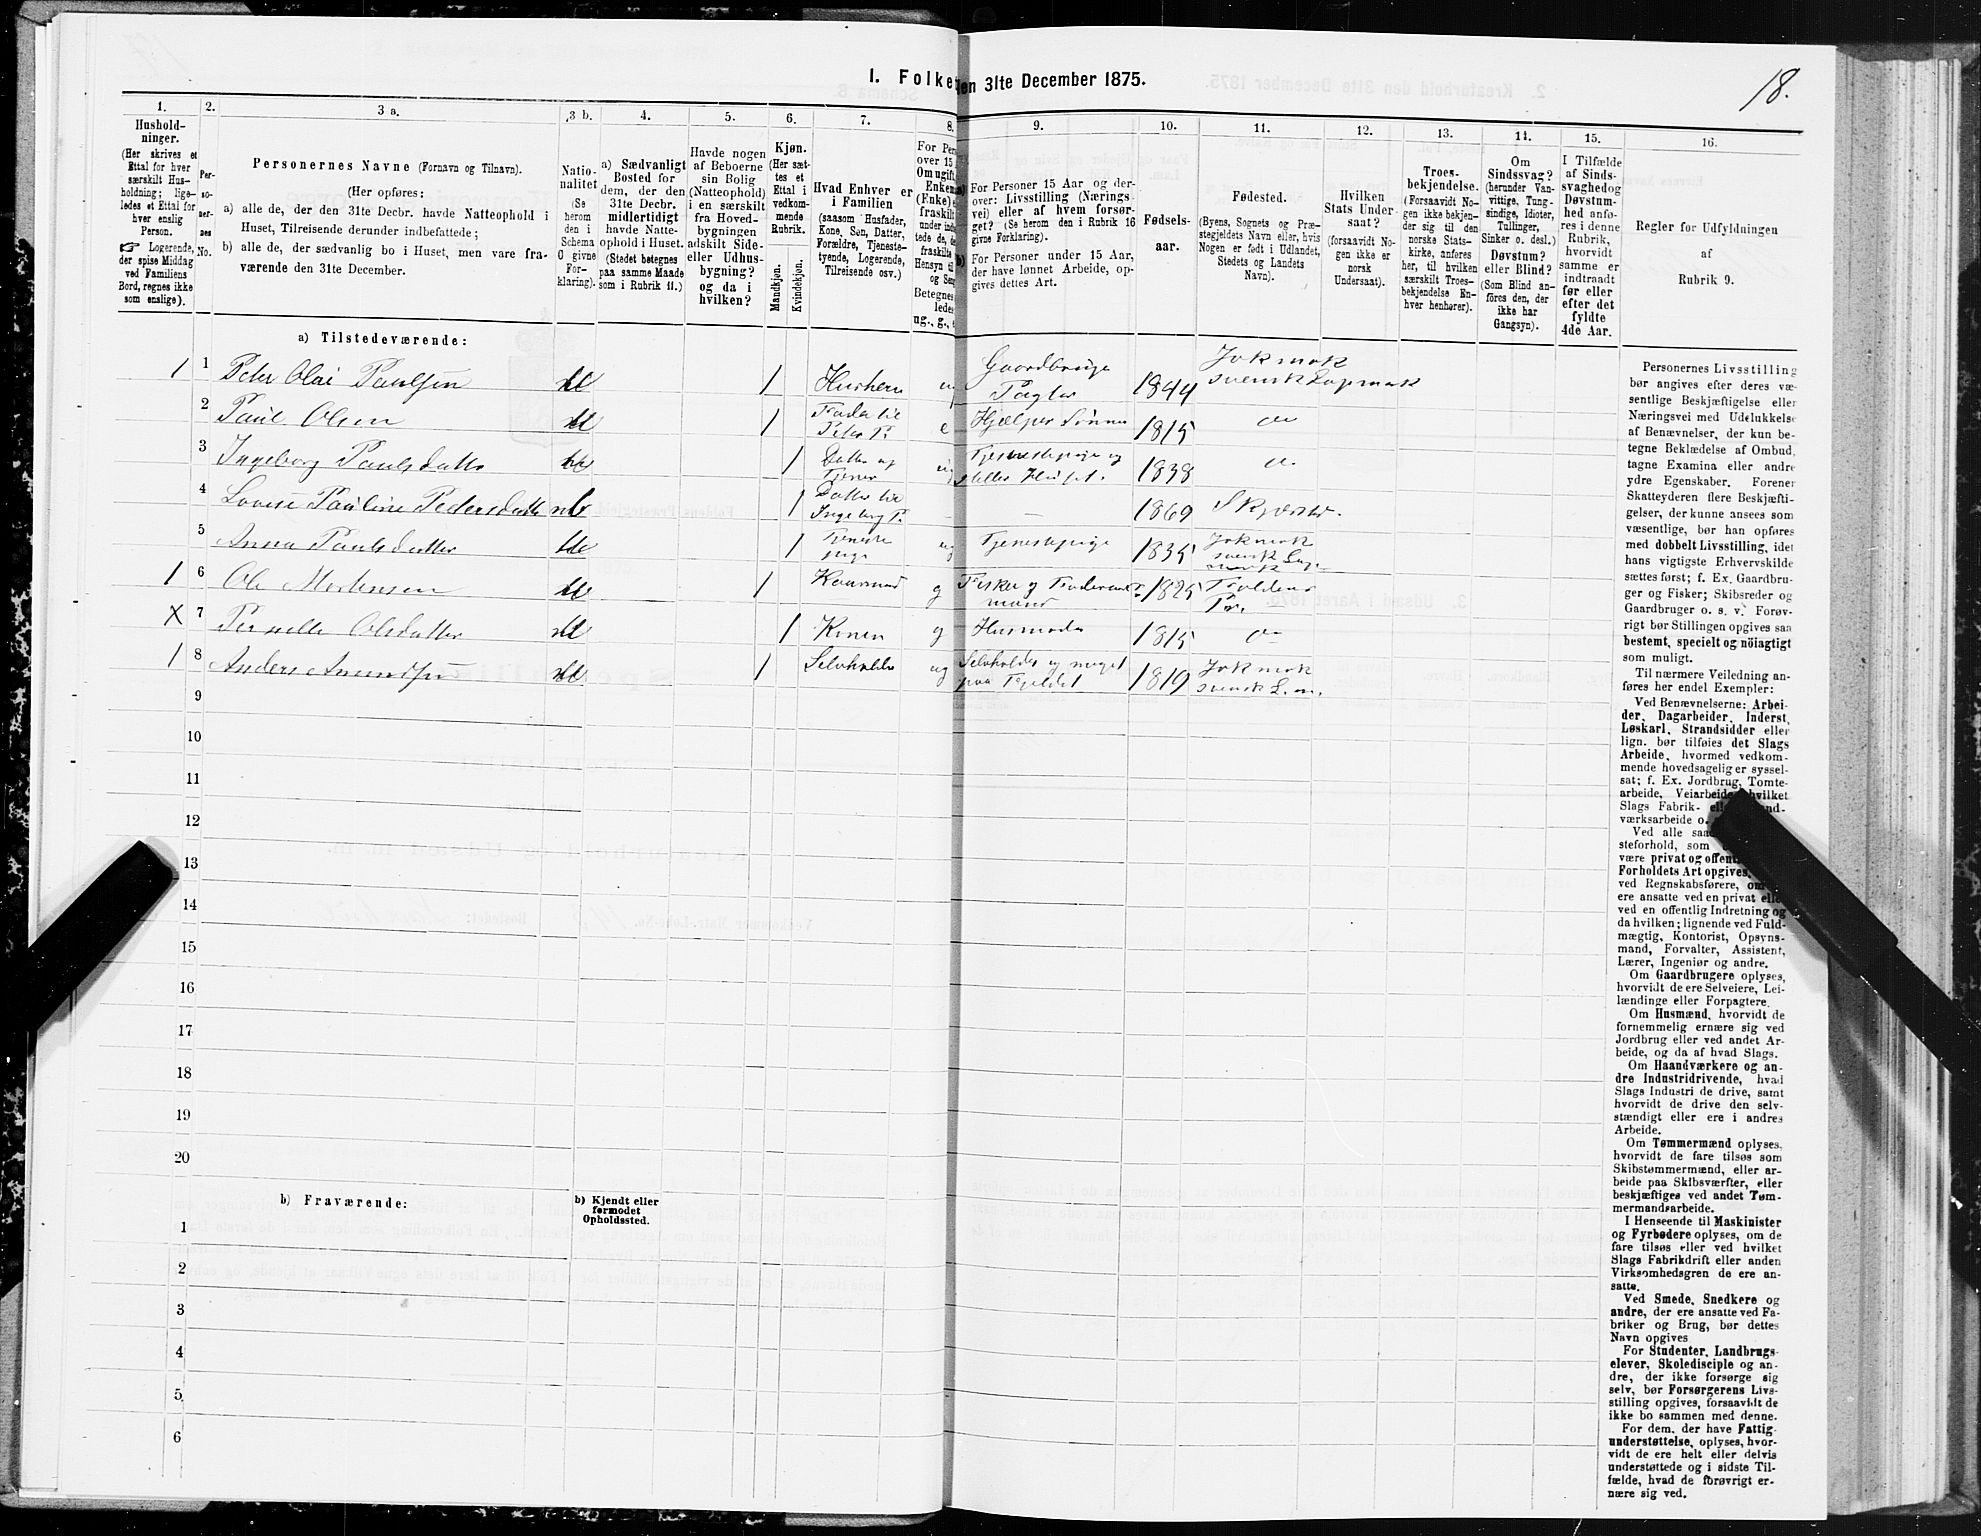 18.
I. Folke
den 31te December 1875.
1.
2.
3 a.
3 b.
4.
5.
6.
7.
8.
9.
10.
11.
12.
13.
14.
15.
16.
Hushold-
ninger.
(Her skrives et
Ettal for hver
særskilt Hus-
holdning; lige-
ledes et Ettal for
hver enslig
Person.
☞ Logerende,
der spise Middag
ved Familiens
Bord, regnes ikke
som enslige).
Per-
so-
ner-
nes
No.
Personernes Navne (Fornavn og Tilnavn).
(Her opføres:
a) alle de, der den 31te Decbr. havde Natteophold i
Huset, Tilreisende derunder indbefattede;
b) alle de, der sædvanlig bo i Huset, men vare fra-
værende den 31te December.
Natio-
nalitet
(Se
herom
den i
Schema
O givne
For-
klaring).
a) Sædvanligt
Bosted for
dem, der den
31te Decbr.
midlertidigt
havde Natte-
ophold i Huset.
(Stedet betegnes
paa samme Maade
som i Rubrik 11.)
Havde nogen
af Beboerne
sin Bolig
(Natteophold)
i en særskilt
fra Hoved-
bygningen
adskilt Side-
eller Udhus-
bygning?
og da i
hvilken?
Kjøn.
(Her sæt-
tes et
Ettal i
vedkom-
mende
Rubrik.
Mandkjøn.
Kvindekjøn.
Hvad Enhver er
i Familien
(saasom Husfader,
Kone, Søn, Datter,
Forældre, Tjeneste-
tyende, Logerende,
Tilreisende osv.)
For Per
over 15
Om ugift,
Enkem
(Enke) e
fraskilt
under ind
tede de, de
fraskilte
Hensyn ti
og Sen
Betegnes
ledes
ug., g., e
a) For Personer 15 Aar og der-
over: Livsstilling (Nærings
vei) eller af hvem forsør-
get? (Se herom den i Rubrik 16
givne Forklaring).
b) For Personer under 15 Aar,
der have lønnet Arbeide, op-
gives dettes Art.
Fødsels-
aar.
Fødested.
(Byens, Sognets og Præ-
stegjeldets Navn eller, hvis
Nogen er født i Udlandet,
Stedets og Landets
Navn).
Hvilken
Stats Under
saat?
(forsaavidt No-
gen ikke er
norsk
Undersaat).
Troes-
bekjendelse.
(Forsaavidt No-
gen ikke bekjen-
der sig til den
norske Stats-
kirke, anføres
her, til hvilken
særskilt Troes-
bekjendelse En-
hver henhører).
Om
Sindssvag?
(herunder Van-
vittige, Tung-
sindige, Idioter,
Tullinger,
Sinker o. desl.)
Døvstum?
eller Blind?
(Som Blind an-
føres den, der
ikke har
Gangsyn).
I Tilfælde
af Sinds-
svaghedog
Døvstum-
hed anfø-
res i denne
Rubrik,
hvorvidt
samme er
indtraadt
før eller
efter det
fyldte
4de Aar.
Regler for Udfyldningen
af
Rubrik 9.
a) Tilstedeværende:
1 1 Peter Olai Paulsen 1 Husherre Gaardbruger 1844 Jokmok
svensk Lapmark
2 Paul Olsen 1 Fader til
Peter P. e Hjælper Sønnen 1815 do
3 Ingeborg Paulsdatter 1 Datter og
Tjener ug Tjenestepige og
steller Huset. 1838 do
4 Lovise Pauline Pedersdatter 1 Datter til
Ingeborg P. — 1869 Skjerstad.
5 Anna Paulsdatter 1 Tjeneste
pige ug Tjenestepige 1835 Jokmok
svensk Lap
mark
1 6 Ole Mortensen 1 g 1825 Foldens
Pr.
X 7 Pernelle Olsdatter 1 Konen g Husmoder 1815 do
1 8 Anders Amundsen 1 Selvholder ug Selvholder og meget
paa Fjeldet 1819 Jokmok
svensk L. m.
9
10
11
12
13
14
15
16
17
18
19
20
b) Fraværende:
b) Kjendt eller
formodet
Opholdssted.
1
2
3
4
5
6
Personernes Livsstilling
bør angives efter deres væ-
sentlige Beskjæftigelse eller
Næringsvei med Udelukkelse
af Benævnelser, der kun be-
tegne Beklædelse af Ombud,
tagne Examina eller andre
ydre Egenskaber. Forener
Skatteyderen flere Beskjæfti-
gelser, der kunne ansees som
væsentlige, bør han opføres
med dobbelt Livsstilling, idet
hans vigtigste Erhvervskilde
sættes først; f. Ex. Gaardbru-
ger og Fisker; Skibsreder og
Gaardbruger o. s. v. Forøv-
rigt bør Stillingen opgives saa
bestemt, specielt og nøiagtigt
som muligt.
Til nærmere Veiledning an-
føres her endel Exempler:
Ved Benævnelserne: Arbei-
der, Dagarbeider, Inderst,
Løskarl, Strandsidder eller
lign. bør tilføies det Slags
Arbeide, hvormed vedkom-
mende hovedsagelig er syssel-
sat; f. Ex. Jordbrug, Tomte-
arbeide, Veiarbeide, hvilket
Slags Fabrik- el
værksarbeide o.
Ved alle saa
steforhold, som
være privat og offent
Forholdets Art opgives,
ved Regnskabsførere, om
ere ansatte ved en privat eller
ved en offentlig Indretning og
da hvilken; lignende ved Fuld-
mægtig, Kontorist, Opsyns-
mand, Forvalter, Assistent,
Lærer, Ingeniør og andre.
Om Gaardbrugere oplyses,
hvorvidt de ere Selveiere, Lei-
lændinge eller Forpagtere.
Om Husmænd, hvorvidt de
fornemmelig ernære sig ved
Jordbrug eller ved andet Ar-
beide, og da af hvad Slags.
Om Haandværkere og an-
dre Industridrivende, hvad
Slags Industri de drive, samt
hvorvidt de drive den selv-
stændigt eller ere i andres
Arbeide.
Om Tømmermænd oplyses,
hvorvidt de fare tilsøs som
Skibstømmermænd, eller ar-
beide paa Skibsværfter, eller
beskjæftiges ved andet Tøm-
mermandsarbeide.
I Henseende til Maskinister
og Fyrbødere oplyses, om de
fare tilsøs eller ved hvilket
Slags Fabrikdrift eller anden
Virksomhedsgren de ere an-
satte.
Ved Smede, Snedkere og
andre, der ere ansatte ved Fa-
briker og Brug, bør dettes
Navn opgives
For Studenter, Landbrugs-
elever, Skoledisciple og an-
dre, der ikke forsørge sig
selv, bør Forsørgerens Livs-
stilling opgives, forsaavidt de
ikke bo sammen med denne.
For dem, der have Fattig-
understøttelse, oplyses, hvor-
vidt de ere helt eller delvis
understøttede og i sidste Til-
fælde, hvad de forøvrigt er-
nære sig ved.